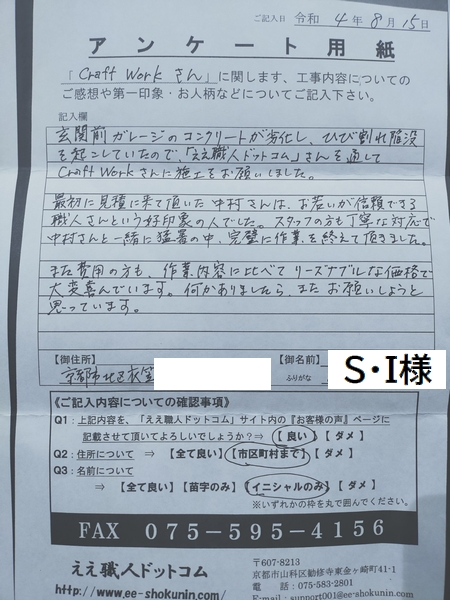 ご記入日 令和 4 年 8 月 15 日
アンケート用紙
「 Craft Work さん 」に関します、工事内容についての
ご感想や第一印象・お人柄などについてご記入下さい。
記入欄
玄関前ガレージのコンクリートが劣化し、ひび割れ陥没
を起こしていたので、「ええ職人ドットコム」さんを通して
Craft Workさんに施工をお願いしました。
最初に見積に来て頂いた中村さんは、お若いが信頼できる
職人さんという好印象の人でした。スタッフの方も丁寧な対応で
中村さんと一緒に猛暑の中、完璧に作業を終えて頂きました。
また費用の方も、作業内容に比べてリーズナブルな価格で
大変喜んでいます。何かありましたら、またお願いしようと
思っています。
【御住所】 【御名前】
京都市北区衣笠
ふりがな
S・I様
《ご記入内容についての確認事項》
Q1：上記内容を、「ええ職人ドットコム」サイト内の『お客様の声』ページに
記載させて頂いてよろしいでしょうか?⇒【 良い 】【 ダメ 】
Q2：住所について ⇒ 【全て良い】【市区町村まで】【 ダメ 】
Q3：名前について
⇒ 【全て良い】【苗字のみ】【イニシャルのみ】【 ダメ 】
※いずれかの枠を丸で囲んでください。
FAX 075-595-4156
ええ職人ドットコム
http://www.ee-shokunin.com/
〒607-8213
京都市山科区勧修寺東金ヶ崎町41-1
電 話：075-583-2801
E-mail：support001@ee-shokunin.com